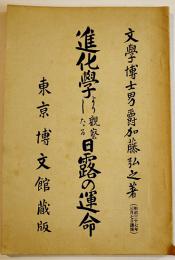 文學博士男爵加藤弘之著
進化學より觀察したる日露の運命
東京博文館蔵版